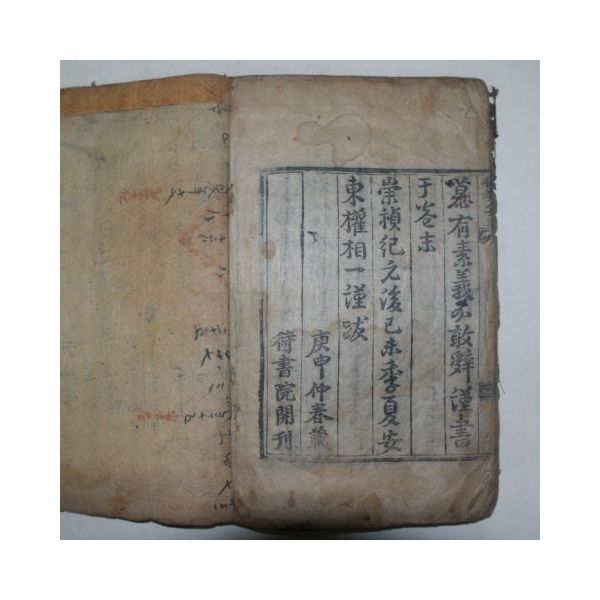 慕有素義不敢辭謹書
于卷末
崇禎紀元後己未季夏安
東權相一謹跋
庚申仲春藏
待書院開刊